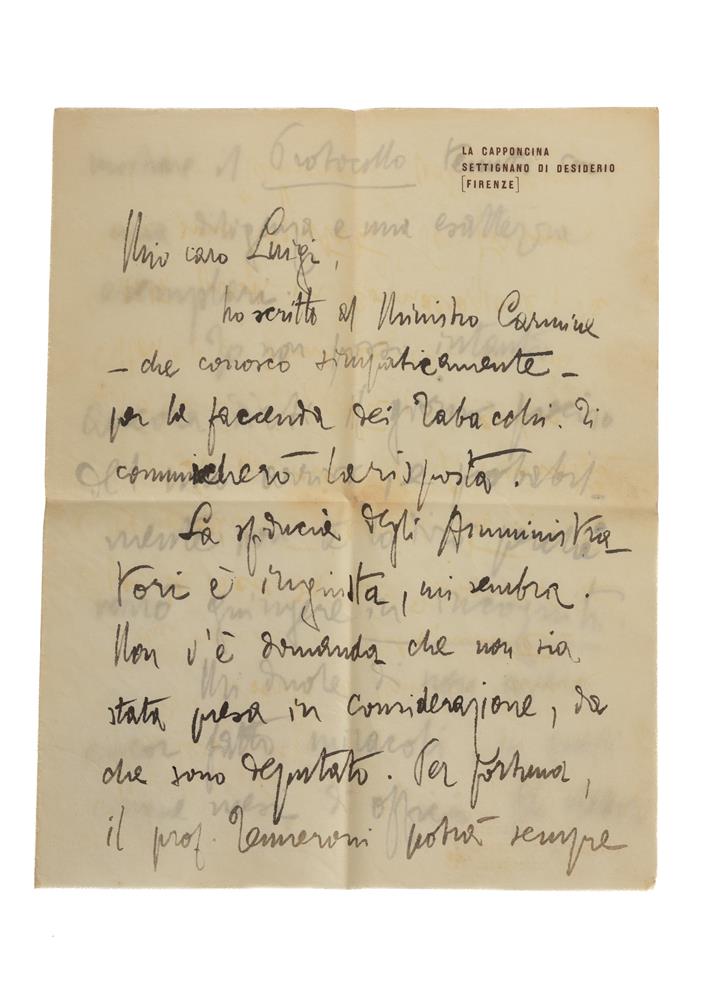 LA CAPPONCINA
SETTIGNANO DI DESIDERIO
[FIRENZE]
Mio caro Luigi,
ho scritto al Ministro Carmine
– che conosco simpaticamente –
per la faccenda dei Tabacchi. Ti
comunicherò la risposta.
La sfiducia degli Amministra-
tori è ingiusta, mi sembra.
Non v'è domanda che non sia
stata presa in considerazione, da
che sono deputato. Per fortuna,
il prof. Tenneroni potrà sempre